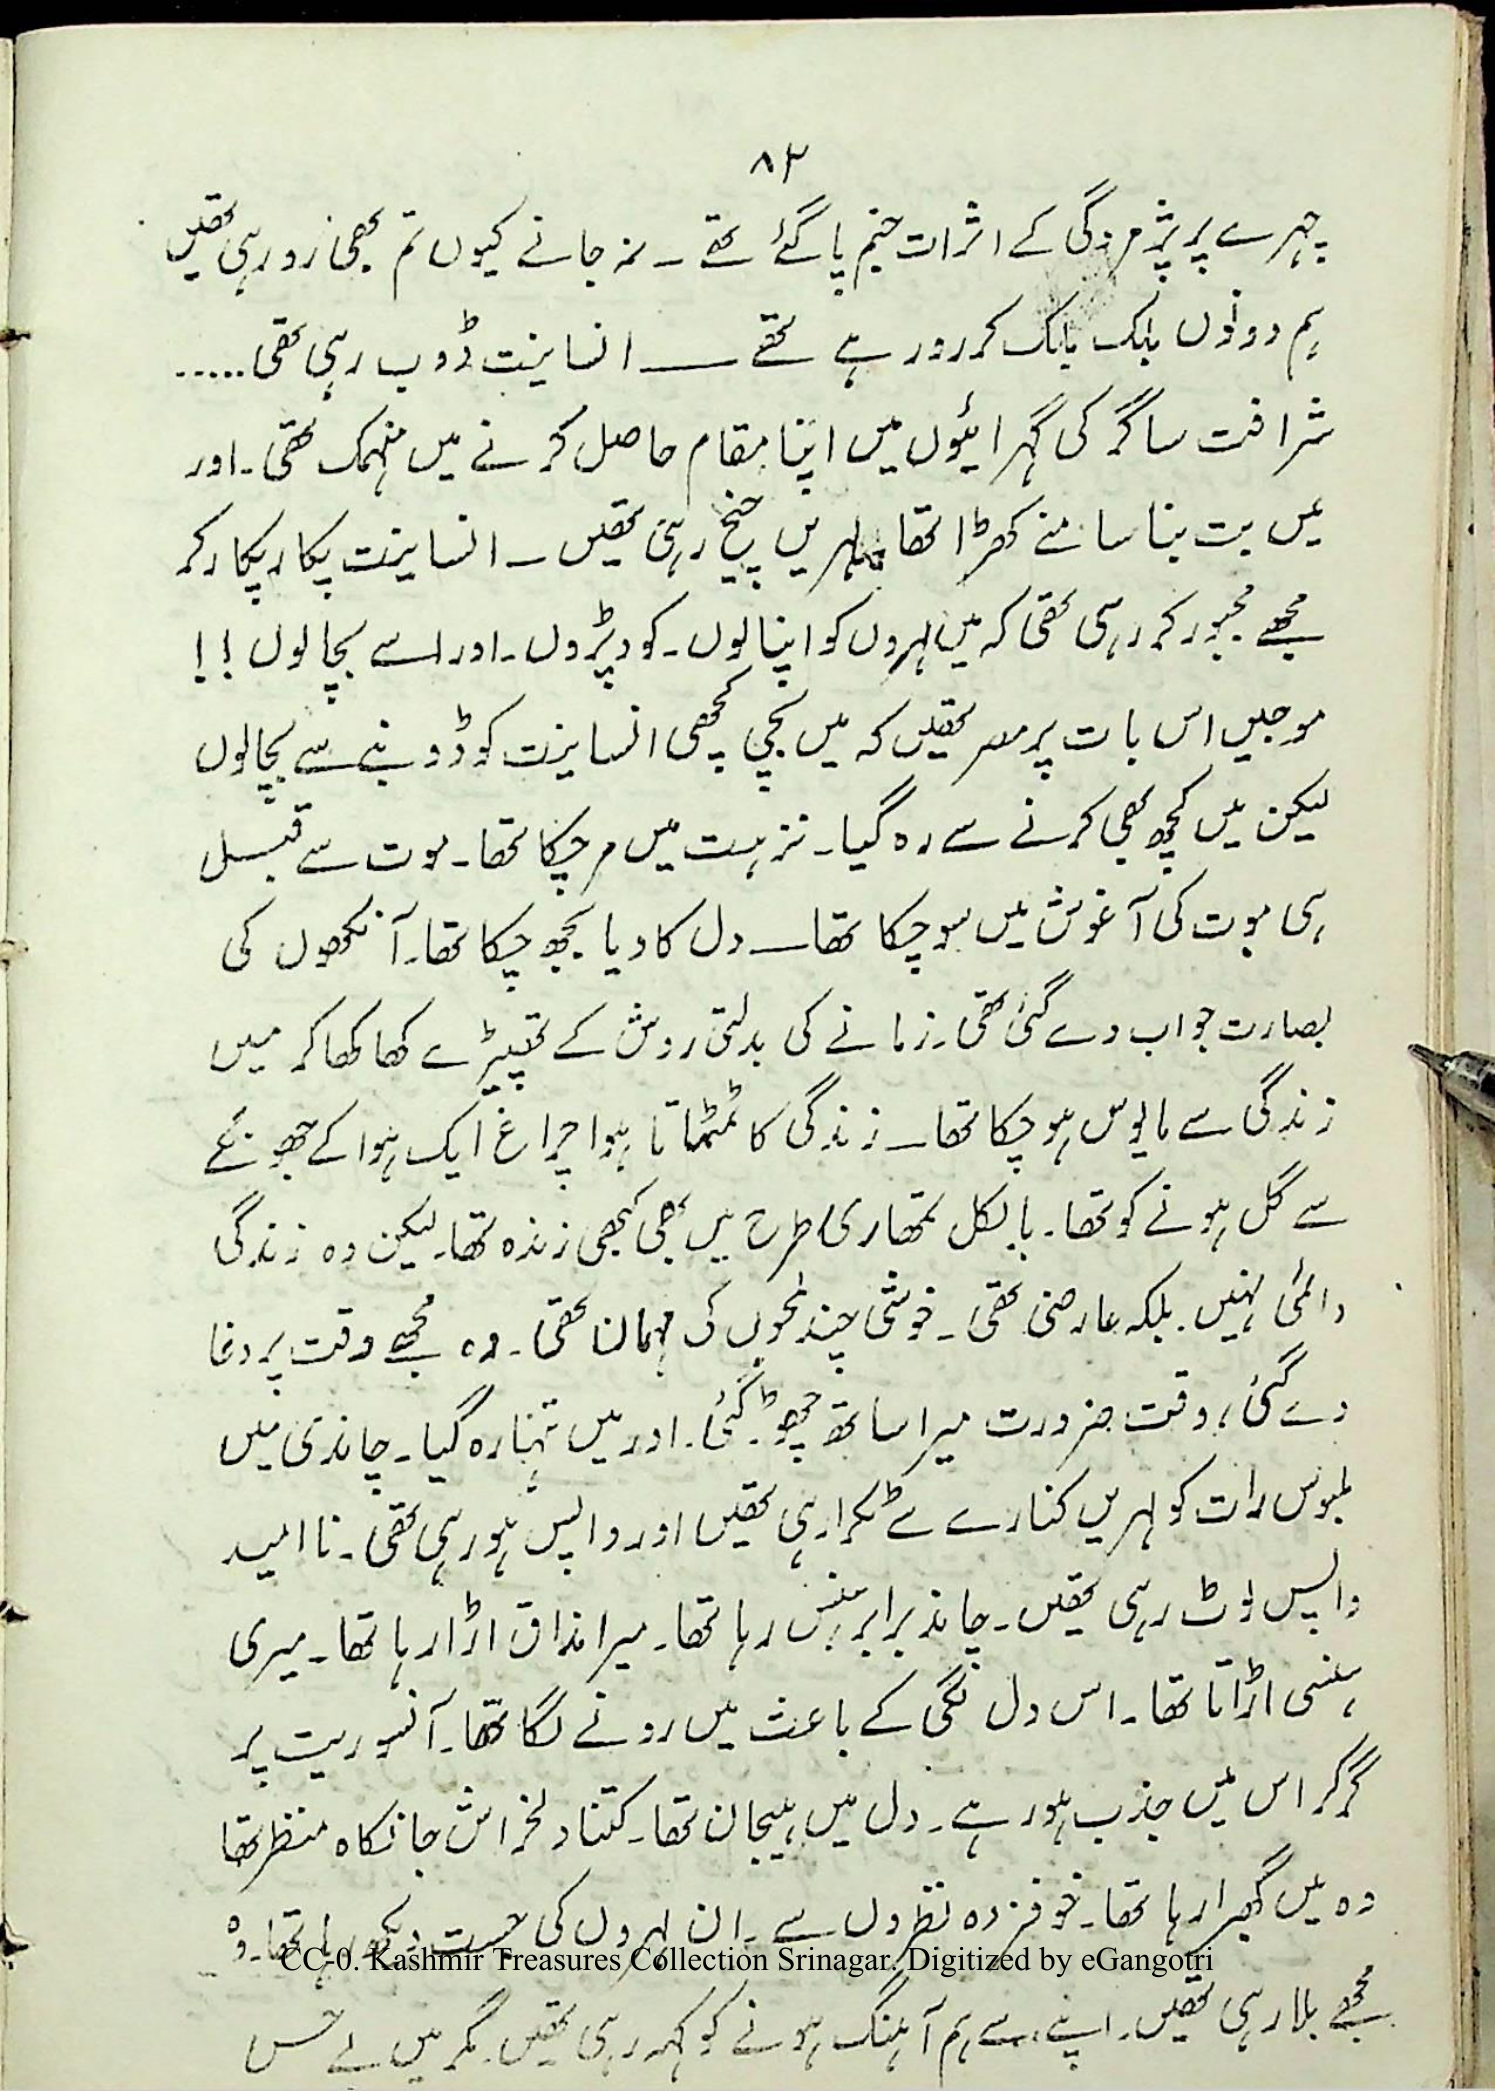 ۸۳
چہرے پر پژمردگی کے اثرات جنم پا گئے تھے ۔ نہ جانے کیوں تم بھی رو رہی تھیں
ہم دونوں بلک بلک کر رو رہے تھے ـــــ انسانیت ڈوب رہی تھی .....
شرافت ساگر کی گہرائیوں میں اپنا مقام حاصل کرنے میں منہمک تھی ۔ اور
میں بت بنا سامنے کھڑا تھا ۔ لہریں چیخ رہی تھیں ۔ انسانیت پکار پکار کر
مجھے مجبور کر رہی تھی کہ میں لہروں کو اپنا لوں ۔ کود پڑوں ۔ اور اسے بچا لوں !!
موجیں اس بات پر مصر تھیں کہ میں بچی کھچی انسانیت کو ڈوبنے سے بچا لوں
لیکن میں کچھ بھی کرنے سے رہ گیا ۔ نزہت میں مر چکا تھا ۔ موت سے قبل
ہی موت کی آغوش میں سو چکا تھا ــ دل کا دیا بجھ چکا تھا ۔ آنکھوں کی
بصارت جواب دے گئی تھی ۔ زمانے کی بدلتی روش کے تھپیڑے کھا کھا کر میں
زندگی سے مایوس ہو چکا تھا ــ زندگی کا ٹمٹماتا ہوا چراغ ایک ہوا کے جھونکے
سے گل ہونے کو تھا ۔ بالکل تمھاری طرح میں بھی کبھی زندہ تھا ۔ لیکن وہ زندگی
دائمی نہیں ۔ بلکہ عارضی تھی ۔ خوشی چند لمحوں کی مہمان تھی ۔ وہ مجھے وقت پر دغا
دے گئی ، وقت ضرورت میرا ساتھ چھوڑ گئی ۔ اور میں تنہا رہ گیا ۔ چاندی میں
ملبوس رات کو لہریں کنارے سے ٹکرا رہی تھیں اور واپس ہو رہی تھی ۔ نا امید
واپس لوٹ رہی تھیں ۔ چاند برابر ہنس رہا تھا ۔ میرا مذاق اڑا رہا تھا ۔ میری
ہنسی اڑاتا تھا ۔ اس دل لگی کے باعث میں رونے لگا تھا ۔ آنسو ریت پر
گر گر اس میں جذب ہو رہے ۔ دل میں ہیجان تھا ۔ کتنا دلخراش جانکاہ منظر تھا
وہ میں گھبرا رہا تھا ۔ خوفزدہ نظروں سے ۔ ان لہروں کی جست دیکھ رہا تھا ۔ وہ
CC-0. Kashmir Treasures Collection Srinagar. Digitized by eGangotri
مجھے بلا رہی تھیں ۔ اپنے سے ہم آہنگ ہونے کو کہہ رہی تھیں ۔ مگر میں بے حس